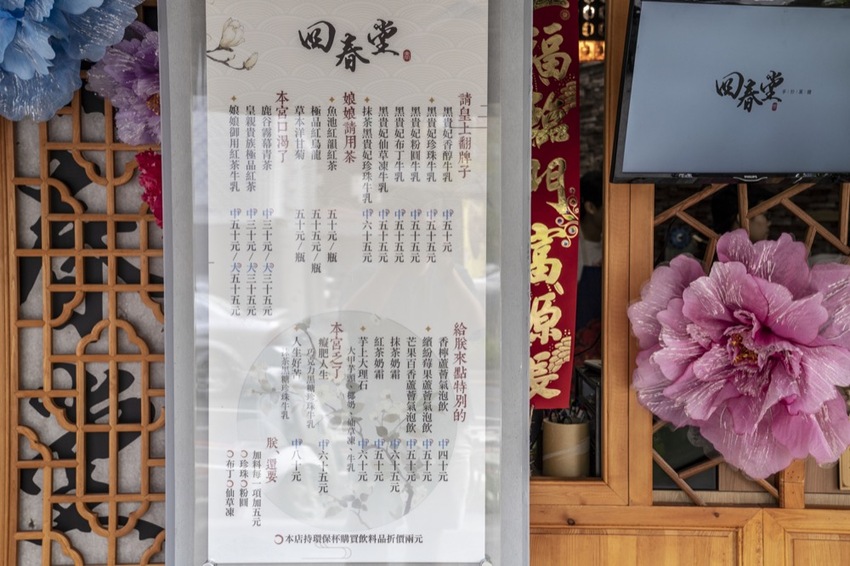 回春堂
請皇上翻牌子
黑貴妃香醇牛乳 中五十元
黑貴妃珍珠牛乳 中五十五元
黑貴妃粉圓牛乳 中五十五元
黑貴妃布丁牛乳 中五十五元
黑貴妃仙草凍牛乳 中五十五元
抹茶黑貴妃珍珠牛乳 中六十五元
娘娘請用茶
魚池紅韻紅茶 五十元/瓶
極品紅烏龍 五十五元/瓶
草本洋甘菊 五十元/瓶
本宮口渴了
鹿谷霧幕青茶 中三十元/大三十五元
皇親貴族極品紅茶 中三十元/大三十五元
娘娘御用紅茶牛乳 中五十元/大五十五元
給朕來點特別的
香檸蘆薈氣泡飲 中四十元
繽紛莓果蘆薈氣泡飲 中五十元
芒果百香蘆薈氣泡飲 中五十元
抹茶奶霜 中六十五元
紅茶奶霜 中五十元
芋上大理石 中六十元
大甲芋頭、椰奶、仙草凍、牛乳
本宮乏了
癡肥人生 中六十五元
巧克力黑糖珍珠牛乳
人生好難 中八十元
抹茶黑糖珍珠牛乳
朕、還要
加料每一項加五元
珍珠 粉圓
布丁 仙草凍
本店持環保杯購買飲料品折價兩元
福臨門富源長
回春堂